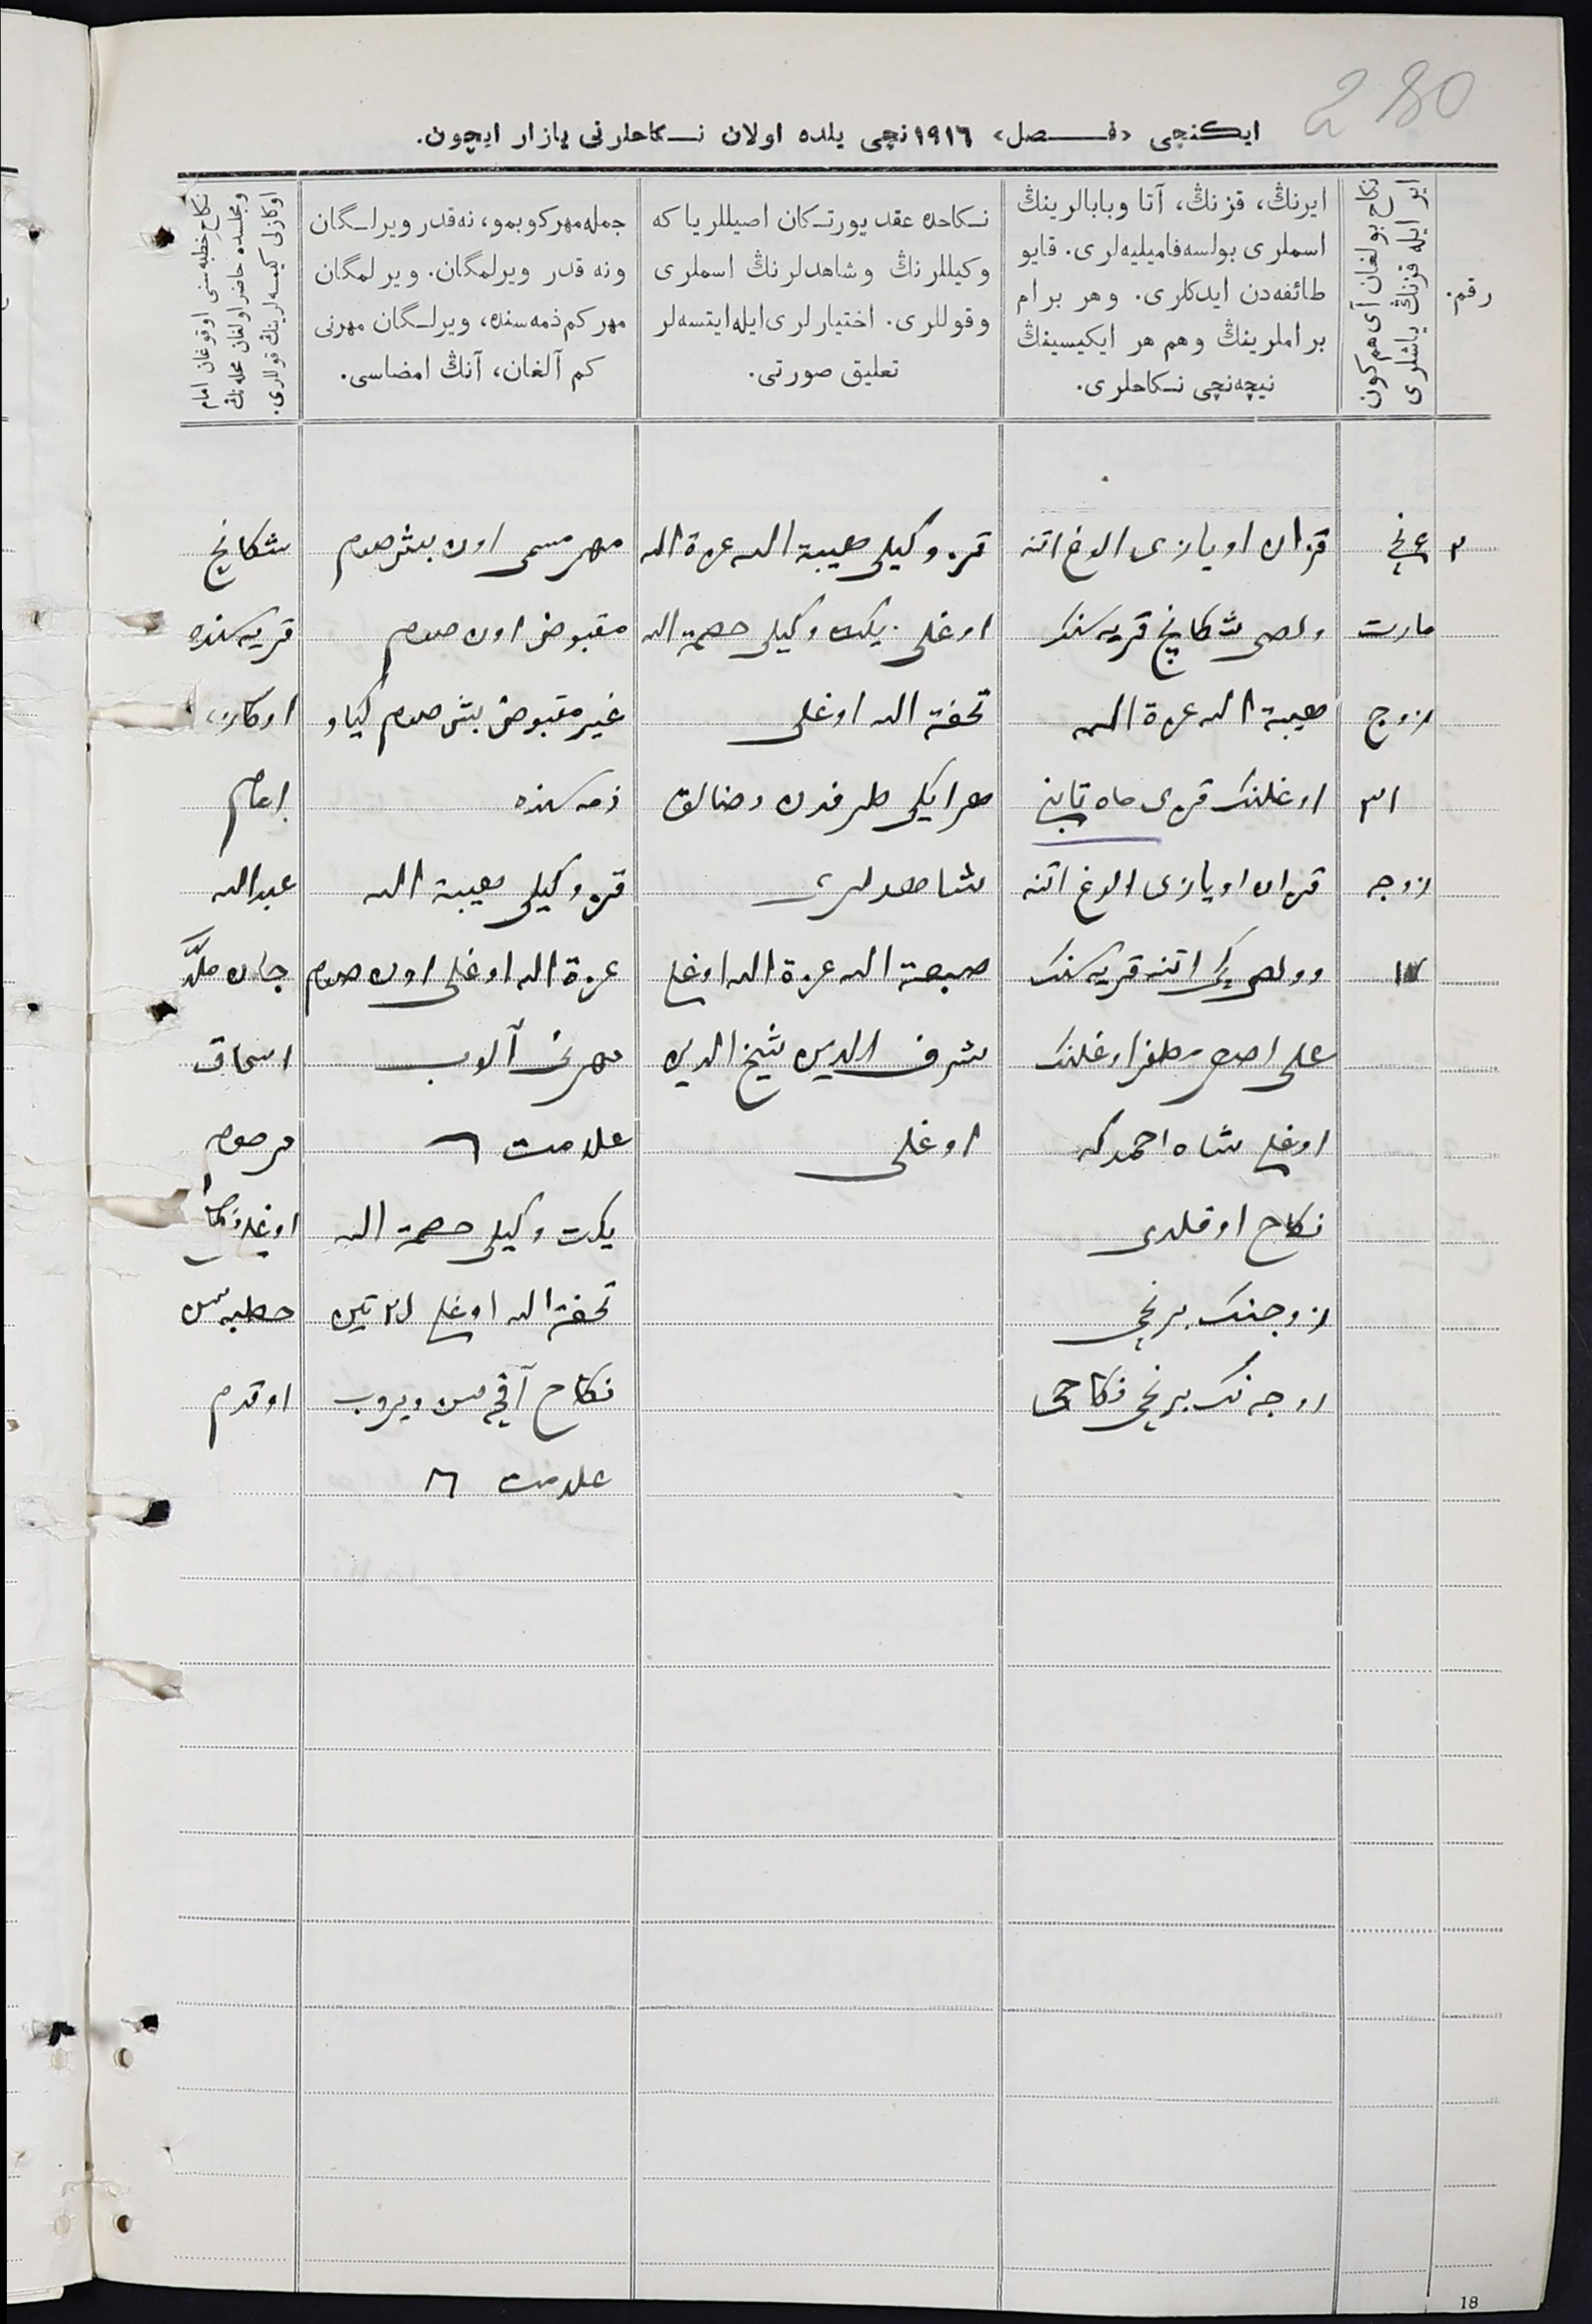 280
ایکنچی «فصل» ۱۹۱٦نچی یلده اولان نکاحلرنی یازار ایچون.
رقم.
نکاح بولغان آی هم کون
ایر ایله قزنڭ یاشلری
ایرنڭ، قزنڭ، آتا وبابالرینڭ
اسملری بولسه فامیلیه‌لری. قایو
طائفه‌دن ایدکلری. وهر برام
براملرینڭ وهم هر ایکیسینڭ
نیچه‌نچی نکاحلری.
نکاحده عقد یورتکان اصیللر یا که
وکیللرنڭ وشاهدلرنڭ اسملری
وقوللری. اختیارلری ایله ایتسه‌لر
تعلیق صورتی.
جمله مهر کوبمو، نه‌قدر ویرلگان
ونه قدر ویرلمگان. ویرلمگان
مهر کم ذمه‌سنده، ویرلگان مهرنی
کم آلغان، آنڭ امضاسی.
نکاح خطبه‌سنی اوقوغان امام
ومجلسده حاضر اولغان محله‌نڭ
اوکازلی کیسه‌لرینڭ قوللری.
۳
۴نچی
مارت
زوج
۳۱
زوجه
۱۷
قزان اویازی الوغ اتنه
ولصی شکانچ قریه سنک
هیبة الله عزة الله
اوغلنک قزی ماه تابنی
قزان اویازی الوغ اتنه
وولصی یکی اتنه قریه سنک
علی اصغر مظفر اوغلنک
اوغلی شاه احمدکه
نکاح اوقلدی
زوجنک برنچی
زوجه نک برنچی نکاحی
قز وکیلی هیبة الله عزة الله
اوغلی. یکت وکیلی حصمة الله
تحفة الله اوغلی
هر ایکی طرفدن رضالق
شاهدلری
صبغة الله عزة الله اوغلی
شرف الدین شیخ الدین
اوغلی
مهر مسمی اون بیش صوم
مقبوض اون صوم
غیر مقبوض بیش صوم کیاو
ذمه سنده
قز وکیلی هیبة الله
عزة الله اوغلی اون صوم
مهرنی آلوب
علامت
یکت وکیلی حصمة الله
تحفة الله اوغلی تین
نکاح آقچه سن ویروب
علامت
شکانچ
قریه سنده
اوکازلی
امام
عبدالله
جان ملا
اسحاق
مرحوم
اوغلی
خطبه سن
اوقدم
18